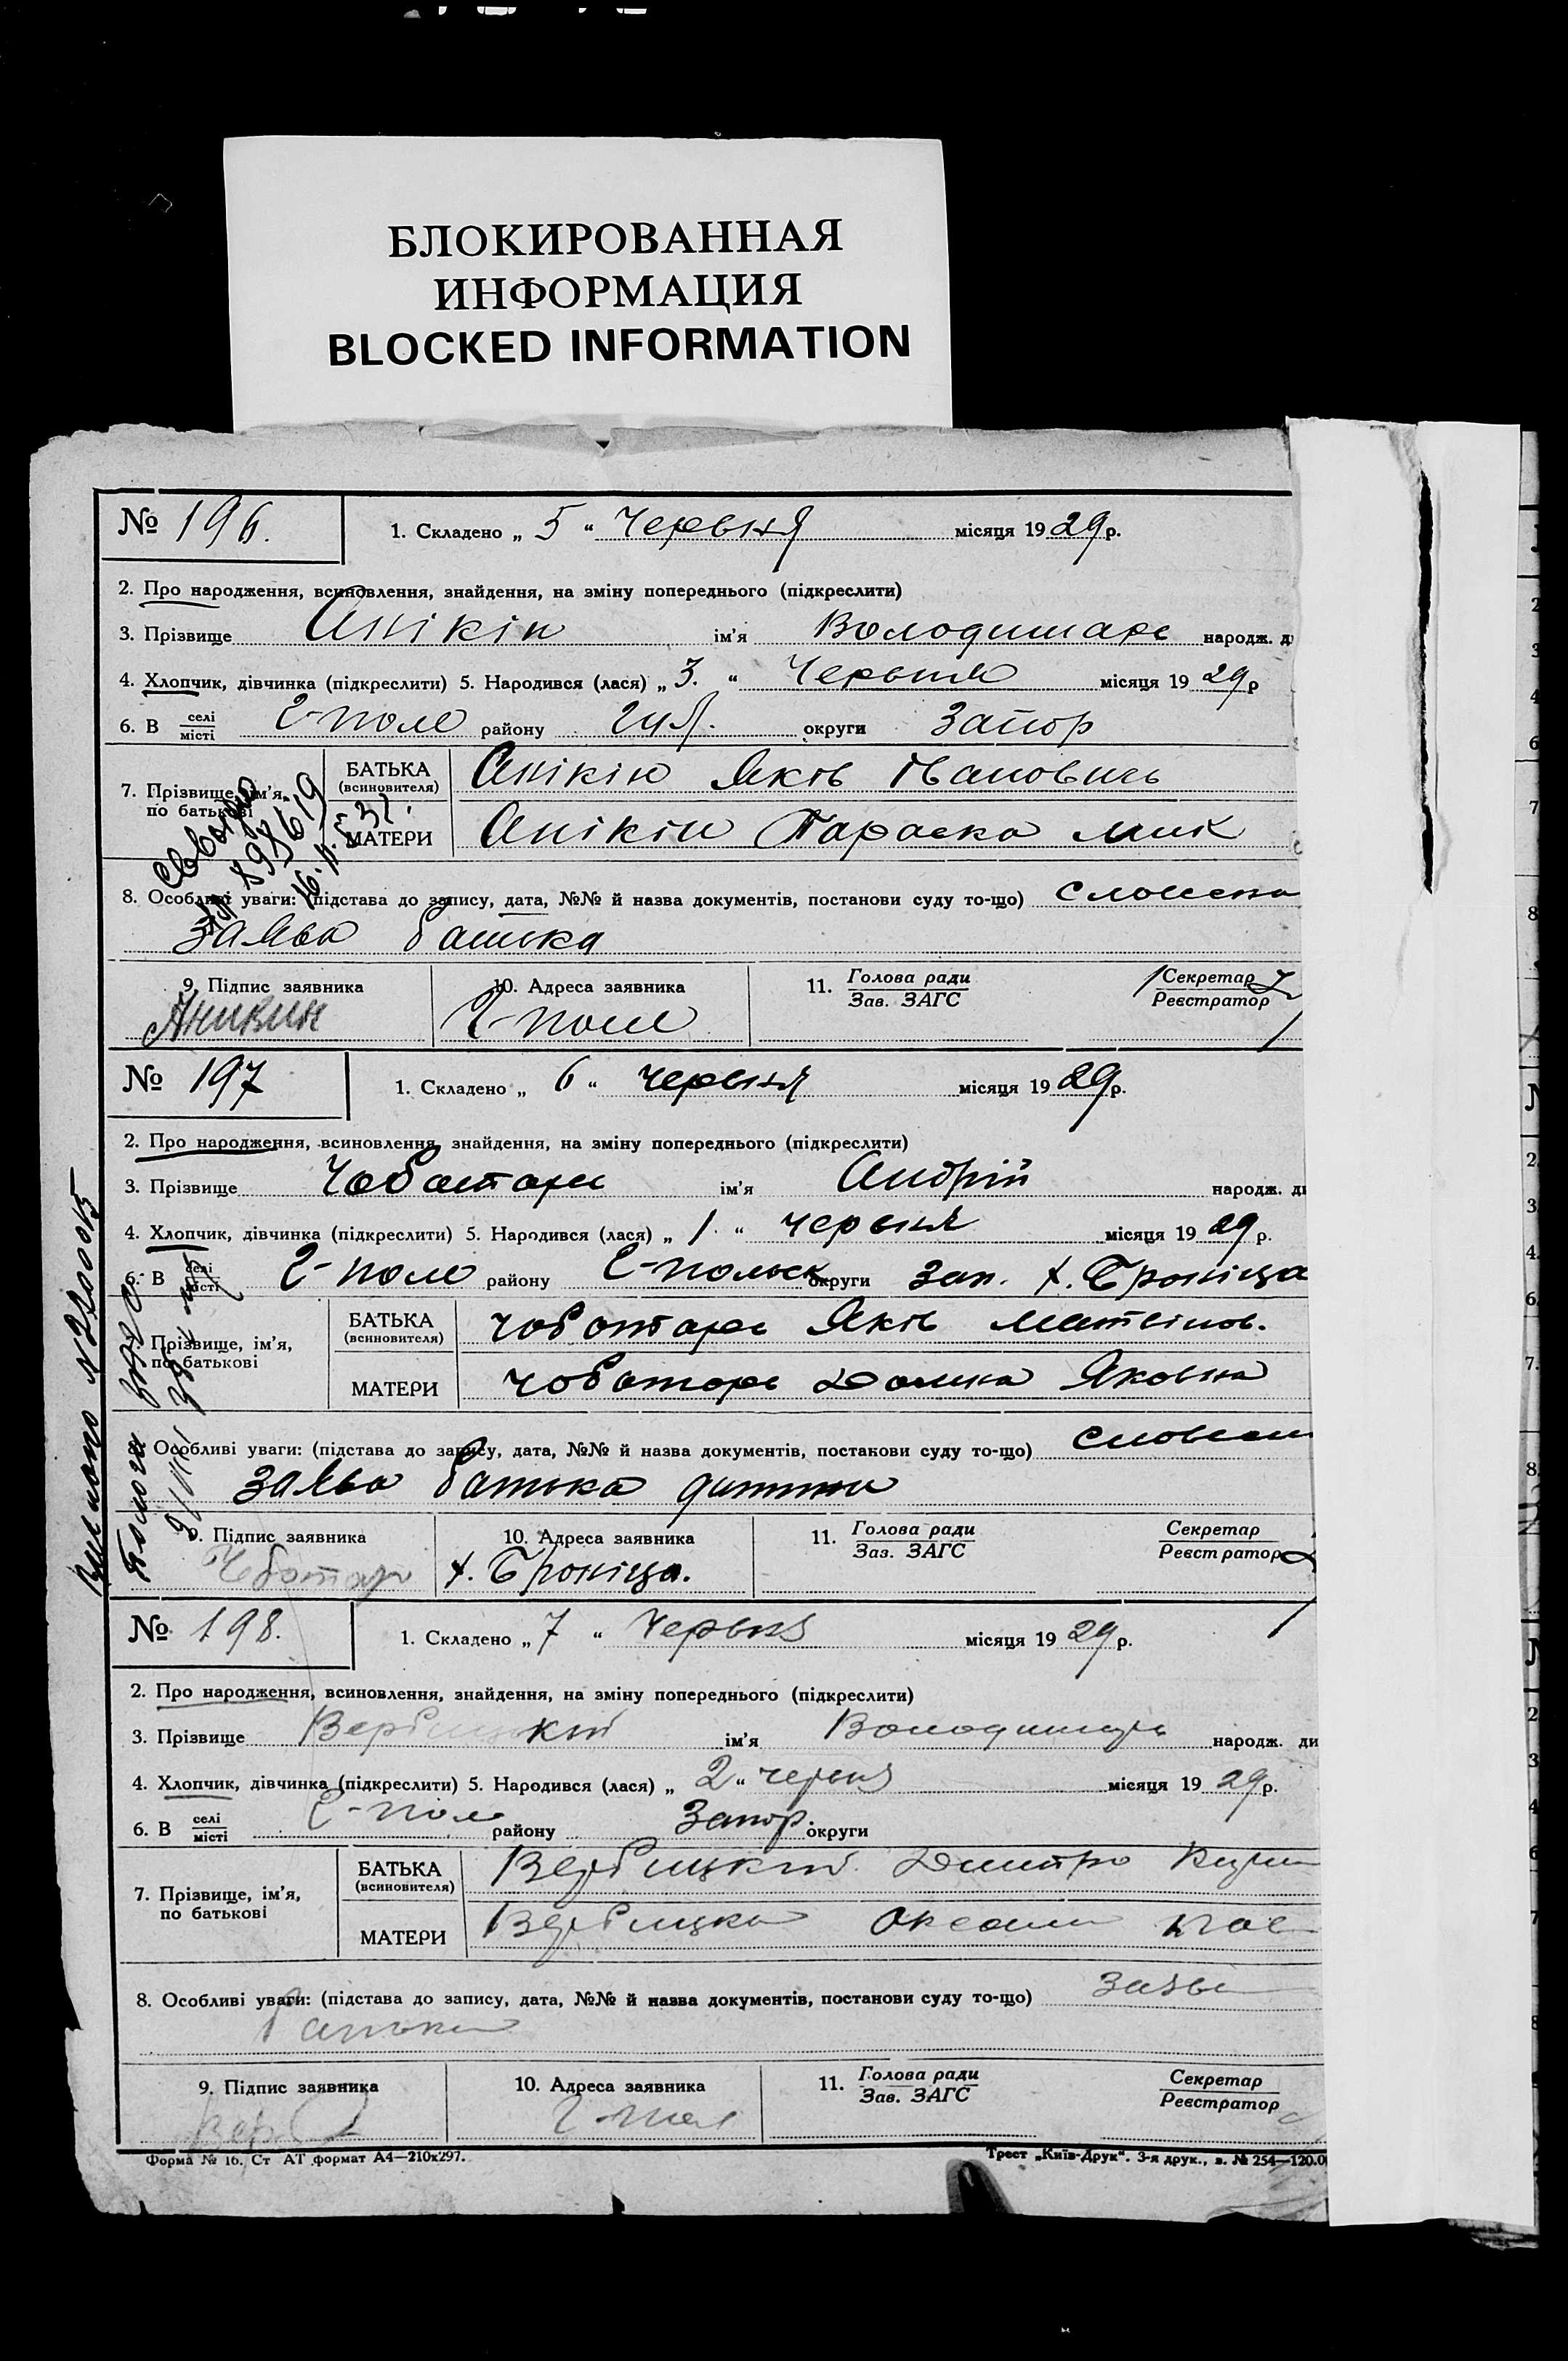 БЛОКИРОВАННАЯ
ИНФОРМАЦИЯ
BLOCKED INFORMATION
№ 196.
1. Складено „ 5 “ Червня місяця 19 29 р.
2. Про народження, всиновлення, знайдення, на зміну попереднього (підкреслити)
3. Прізвище Анікін ім’я Володимарь народж.
4. Хлопчик, дівчинка (підкреслити) 5. Народився (лася) „ 3. “ Червня місяця 19 29 р
6. В селі місті Г-поле району округи Запор
7. Прізвище, ім’я, по батькові
БАТЬКА (всиновителя) Анікін Яків Іванович
МАТЕРИ Анікін Параска Мик
8. Особливі уваги: (підстава до запису, дата, №№ й назва документів, постанови суду то-що) словесна
заява батька
9. Підпис заявника 10. Адреса заявника 11. Голова ради Зав. ЗАГС Секретар Реєстратор
Аникин Г-поле
№ 197
1. Складено „ 6 “ червня місяця 19 29 р.
2. Про народження, всиновлення, знайдення, на зміну попереднього (підкреслити)
3. Прізвище Чоботарь ім’я Андрій народж.
4. Хлопчик, дівчинка (підкреслити) 5. Народився (лася) „ 1. “ червня місяця 19 29 р.
6. В селі місті Г-поле району Г-польск округи Зап. х. Броніца
7. Прізвище, ім’я, по батькові
БАТЬКА (всиновителя) Чоботарь Яків Матвійов.
МАТЕРИ Чоботарь Яковна
Особливі уваги: (підстава до запису, дата, №№ й назва документів, постакови суду то-що) словесн
заява батька дитини
9. Підпис заявника 10. Адреса заявника 11. Голова ради Заз. ЗАГС Секретар Реєстратор
Чботарь х. Броніца.
№ 198.
1. Складено „ 7 “ Червня місяця 19 29 р.
2. Про народження, всиновлення, знайдення, на зміну попереднього (підкреслити)
3. Прізвище Вербицький ім’я Володимирь народж. ди
4. Хлопчик, дівчинка (підкреслити) 5. Народився (лася) „ 2 “ червня місяця 19 29 р.
6. В селі місті Г-поле району Запор. округи
7. Прізвище, ім’я, по батькові
БАТЬКА (всиновителя) Вербицкий Дмитро
МАТЕРИ Вербицка Оксана
8. Особливі уваги: (підстава до запису, дата, №№ й назва документів, постанови суду то-що) заяв
батька
9. Підпис заявника 10. Адреса заявника 11. Голова ради Зав. ЗАГС Секретар Реєстратор
Верб Г-поле
Форма № 16. Ст АТ формат А4—210х297. Трест „Київ-Друк“. 3-я друк., з. № 254—120.0